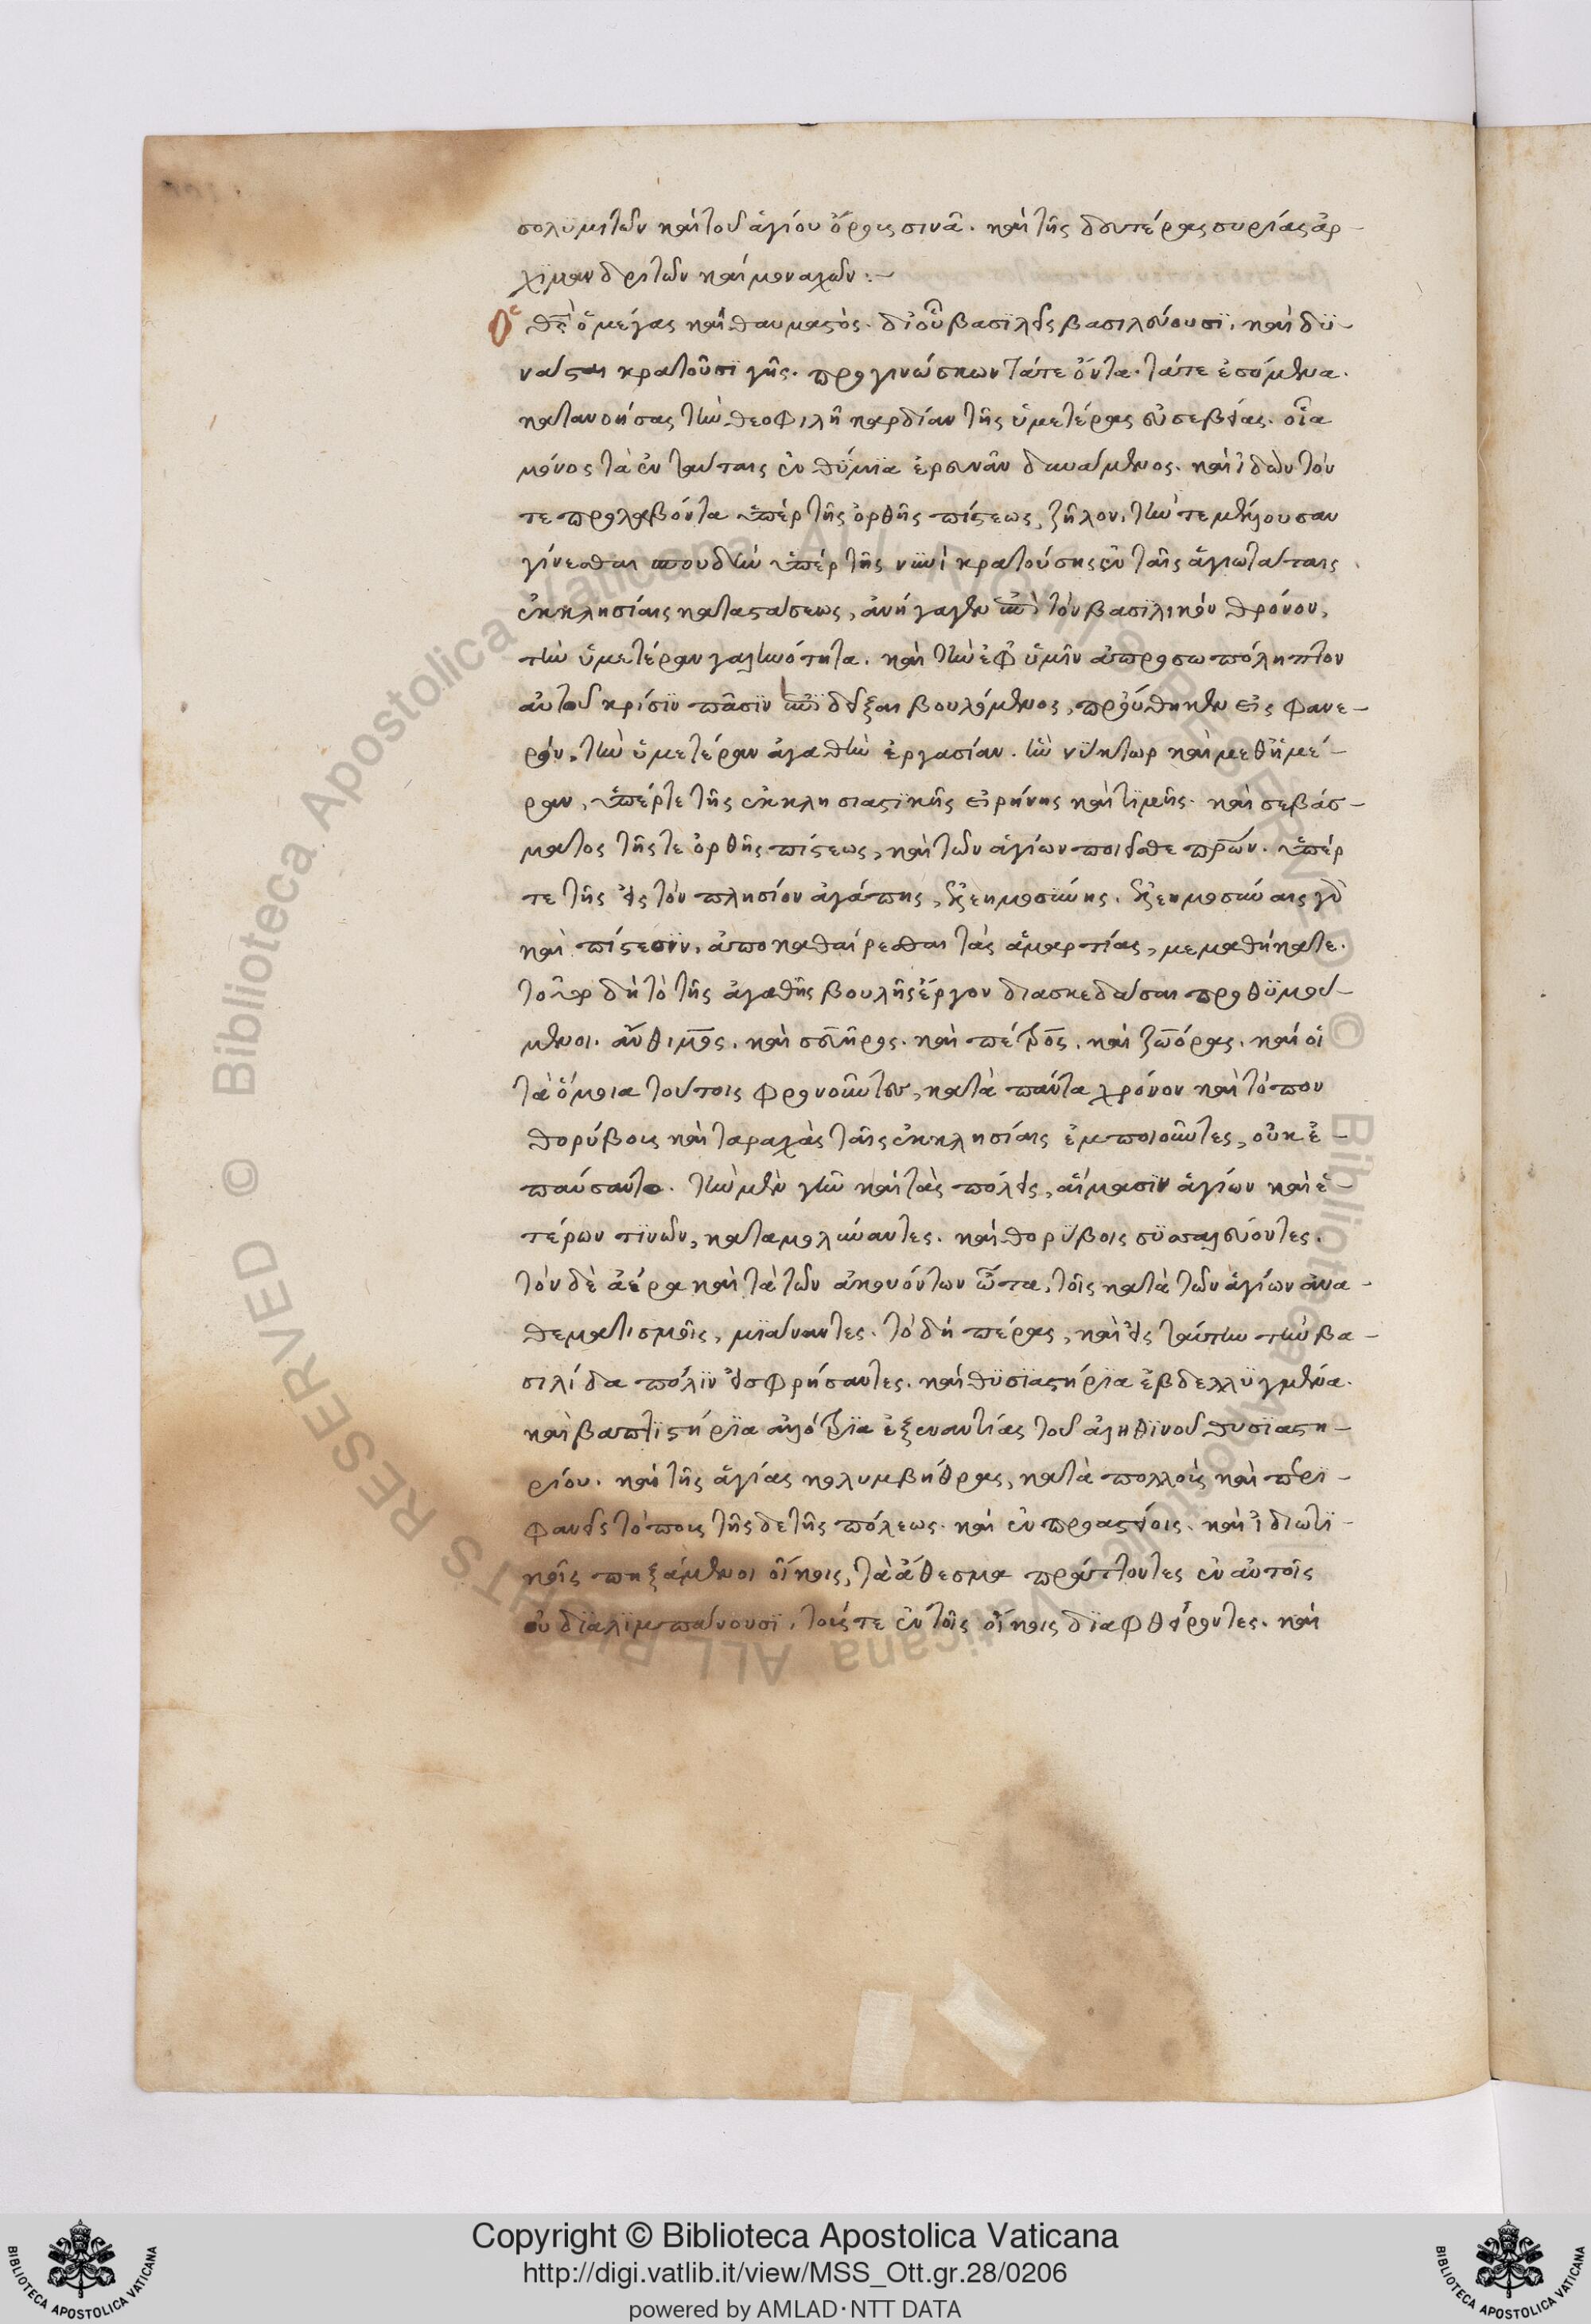 σολυμιτῶν καὶ τοῦ ἁγίου ὄρους σινᾶ. καὶ τῆς δευτέρας συρίας ἀρ-
χϊμανδριτῶν καὶ μοναχῶν :-
Ὁ θς̅ ὁ μέγας καὶ θαυμαστὸς. δι' οὗ βασϊλεῖς βασιλεύουσϊ. καὶ δϋ-
νάσται κρατοῦσϊ γῆς. προγινώσκων τάτε ὄντα. τάτε ἐσόμενα.
κατανοήσας τὴν θεοφιλῆ καρδίαν τῆς ὑμετέρας εὐσεβείας. οἷα
μόνος τὰ ἐν ταύταις ἐνθϋμϊα ἐρευνᾶν δυνάμενος. καὶ ἰδὼν τόν
τε προλαβόντα ὑπὲρ τῆς ὀρθῆς πίστεως, ζῆλον. τήν τε μέλλουσαν
γίνεσθαι σπουδὴν ὑπὲρ τῆς νυνὶ κρατούσης ἐν ταῖς ἁγιωτάταις
ἐκκλησίαις καταστάσεως, ἀνήγαγεν ἐπὶ τὸν βασϊλικὸν θρόνον,
τὴν ὑμετέραν γαληνότητα. καὶ τὴν ἐφ' ὑμῖν ἀπροσωπόληπτον
αὐτοῦ κρίσϊν πᾶσϊν ἐπϊδεῖξαι βουλόμενος, προὔθηκεν εἰς φανε-
ρὸν, τὴν ὑμετέραν ἀγαθὴν ἐργασίαν. ἣν νύκτωρ καὶ μεθ' ἡμέ-
ραν, ὑπέρ τε τῆς ἐκκλησιαστϊκῆς εἰρήνης καὶ τϊμῆς. καὶ σεβάσ-
ματος τῆς τε ὀρθῆς πίστεως, καὶ τῶν ἁγίων ποιεῖσθε πρ̅ων. ὑπέρ
τε τῆς εἰς τὸν πλησίον ἀγάπης, ἐλεημοσύνης. ἐλεημοσύναις γὰρ
καὶ πίστεσϊν, ἀποκαθαίρεσθαι τὰς ἁμαρτίας, μεμαθήκατε.
τοῦτο δὴ τὸ τῆς ἀγαθῆς βουλῆς ἔργον διασκεδάσαι προθϋμού-
μενοι. ἄνθιμος. καὶ σευῆρος. καὶ πέτρος. καὶ ζωόρας. καὶ οἱ
τὰ ὅμοια τούτοις φρονοῦντες, κατὰ πάντα χρόνον καὶ τόπον
θορύβους καὶ ταραχὰς ταῖς ἐκκλησίαις ἐμποιοῦντες, οὐκ ἐ-
παύσαντο. τὴν μὲν γῆν καὶ τὰς πόλεις, αἵμασϊν ἁγίων καὶ ἑ-
τέρων τϊνῶν, καταμολύναντες. καὶ θορϋβοις
τὸν δὲ ἀέρα καὶ τὰ τῶν ἀκουόντων ὦτα, τοῖς κατὰ τῶν ἁγίων ἀνα-
θεματισμοῖς, μϊάναντες. τὸ δὴ πέρας, καὶ εἰς ταύτην τὴν βα-
σιλίδα πόλϊν εἰσφρήσαντες. καὶ θϋσϊαστήρϊα ἐβδελλϋγμένα.
καὶ βαπτϊστήρϊα ἀλλότρϊα ἐξεναντίας τοῦ ἀληθϊνοῦ θυσϊαστη-
ρίου. καὶ τῆς ἁγίας κολυμβήθρας, κατὰ πολλοὺς καὶ περϊ-
φανεῖς τόπους τῆς δε τῆς πόλεως. καὶ ἐν προαστείοις. καὶ ἰδιωτϊ-
κοῖς πηξάμενοι οἴκοις, τὰ ἄθεσμα πράττοντες ἐν αὐτοῖς
οὐ δϊαλϊμπάνουσϊ. τούς τε ἐν τοῖς οἴκοις δϊαφθείροντες. καὶ
Copyright © Biblioteca Apostolica Vaticana
http://digi.vatlib.it/view/MSS_Ott.gr.28/0206
powered by AMLAD·NTT DATA